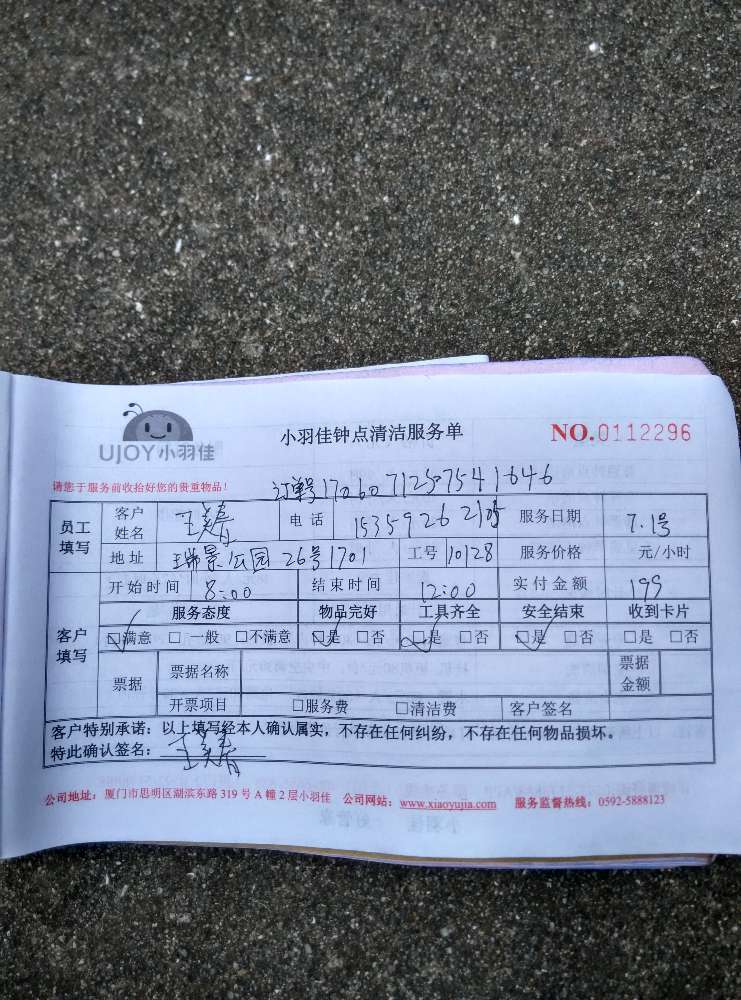 UJOY小羽佳
小羽佳钟点清洁服务单
NO.0112296
请您于服务前收拾好您的贵重物品!
订单号17060712507541646
员工填写 客户姓名 王美春 电话 服务日期 7.1号
地址 瑞景公园26号1701 工号 10128 服务价格 元/小时
客户填写 开始时间 8:00 结束时间 12:00 实付金额 199
服务态度 物品完好 工具齐全 安全结束 收到卡片
☑满意 □一般 □不满意 ☑是 □否 ☑是 □否 ☑是 □否 □是 □否
票据 票据名称 票据金额
开票项目 □服务费 □清洁费 客户签名
客户特别承诺:以上填写经本人确认属实,不存在任何纠纷,不存在任何物品损坏。
特此确认签名: 王美春
公司地址:厦门市思明区湖滨东路319号A幢2层小羽佳 公司网站:www.xiaoyujia.com 服务监督热线:0592-5888123